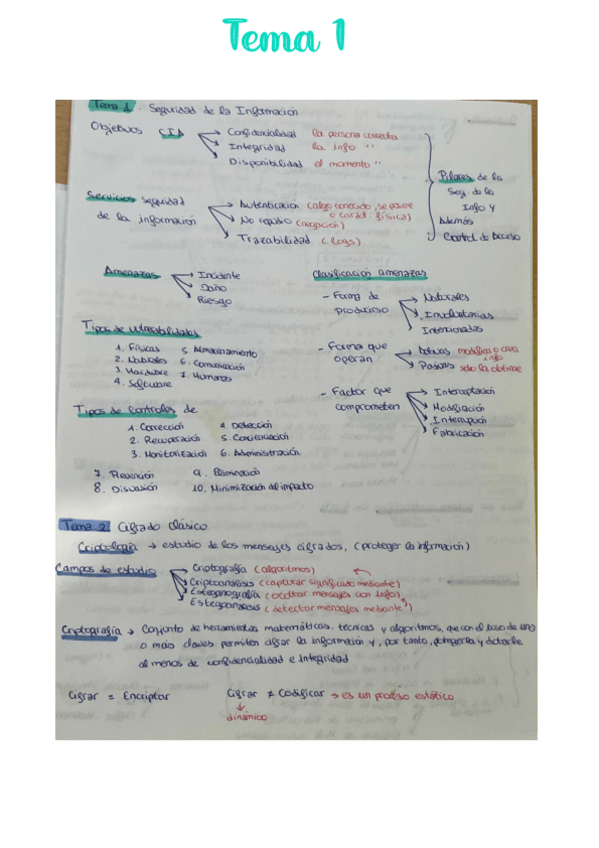 Tema 1
Tema 1. Seguridad de la Información
Objetivos CIA → Confidencialidad la persona correcta
Integridad la info "
Disponibilidad al momento "
Pilares de la
Seg. de la
Info y
Además
Control de Acceso
Servicios seguridad
de la información
Autenticación (algo conocido, se posee
o caráct. física)
No repudio (negación)
Trazabilidad (logs)
Amenazas → Incidente
Daño
Riesgo
Clasificación amenazas
- Forma de
producirse
Naturales
Involuntarias
Intencionadas
- Forma que
operan
Activas modifica o crea
info
Pasivas solo la obtiene
- Factor que
comprometen
Interceptación
Modificación
Interrupción
Fabricación
Tipos de vulnerabilidades
1. Físicas
2. Naturales
3. Hardware
4. Software
5. Almacenamiento
6. Comunicación
7. Humanas
Tipos de Controles de
1. Corrección
2. Recuperación
3. Monitorización
4. Detección
5. Concienciación
6. Administración
7. Prevención
8. Disuasión
9. Eliminación
10. Minimización del impacto
Tema 2. Cifrado Clásico
Criptología → estudio de los mensajes cifrados, (proteger la información)
Campos de estudio → Criptografía (algoritmos)
Criptoanálisis (capturar significado mediante)
Esteganografía (ocultar mensajes con info)
Estegoanálisis (detectar mensajes mediante ")
Criptografía → Conjunto de herramientas matemáticas, técnicas y algoritmos, que con el uso de uno
o más claves permiten cifrar la información y, por tanto, protegerla y dotarle
al menos de confidencialidad e integridad
Cifrar = Encriptar
Cifrar ≠ Codificar → es un proceso estático
↓
dinámico